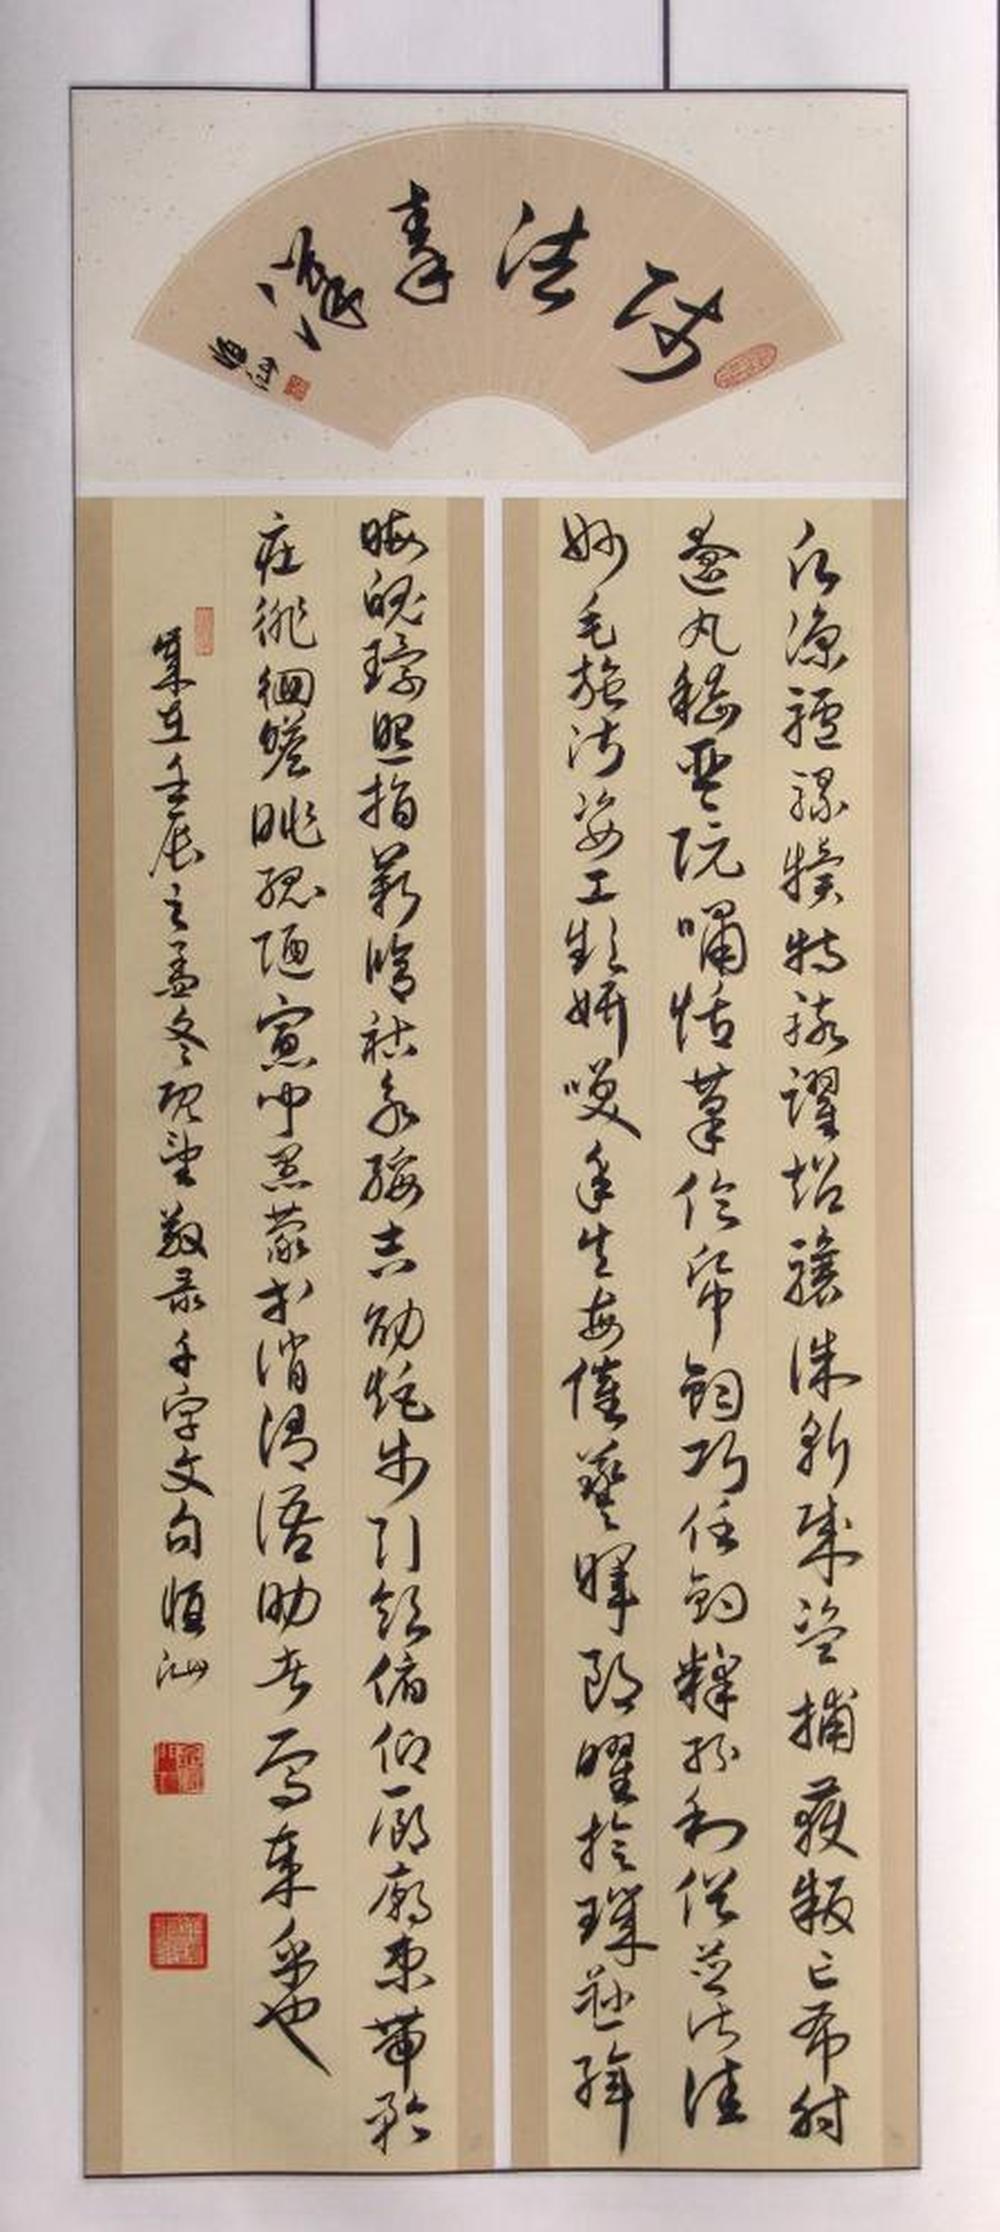 法秦漢
願涼驢騾犢特駭躍超驤誅斬賊盜捕獲叛亡布射
遼丸嵇琴阮嘯恬筆倫紙鈞巧任釣釋紛利俗並皆佳
妙毛施淑姿工顰妍笑年矢每催羲暉朗曜旋璣懸斡
晦魄環照指薪修祜永綏吉劭矩步引領俯仰廊廟束帶矜
莊徘徊瞻眺孤陋寡聞愚蒙等誚謂語助者焉哉乎也
歲在壬辰之孟冬既望敬錄千字文句恒汕